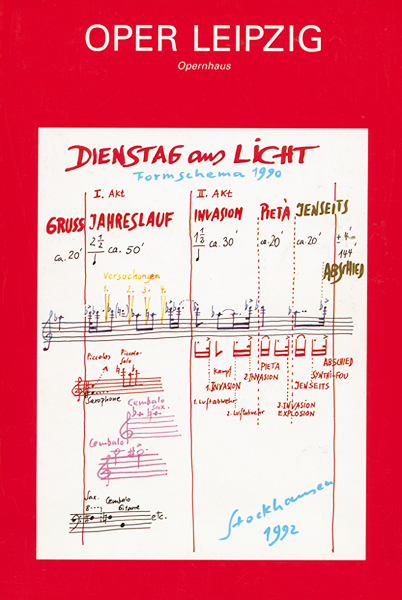 OPER LEIPZIG
Opernhaus
DIENSTAG aus LICHT
Formschema 1990
I. Akt
II. Akt
GRUSS JAHRESLAUF INVASION PIETÀ JENSEITS
ca. 20' 2 1/2 ca. 50' ca. 30' ca. 20' ca. 20' ± 4'
144'
ABSCHIED
Versuchungen
1. 2. 3. 4.
Piccolos
Piccolo-
Solo
Saxophone
Cembalo
Sax.
Cembalo
Kampf
1. INVASION
1. Luftabwehr
2. Luftabwehr
PIETA
2. INVASION
JENSEITS
3. INVASION
EXPLOSION
ABSCHIED
SYNTHI-FOU
Sax. Cembalo
8 Gitarre
etc.
Stockhausen
1992